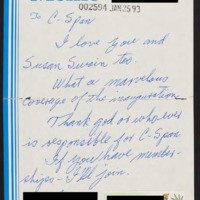 002594 JAN 25 93
To C-Span
I love you and
Susan Swain too.
What a marvelous
coverage of the inauguration
Thank god or whoever
is responsible for C-Span.
If you have member-
ships - I'll join.